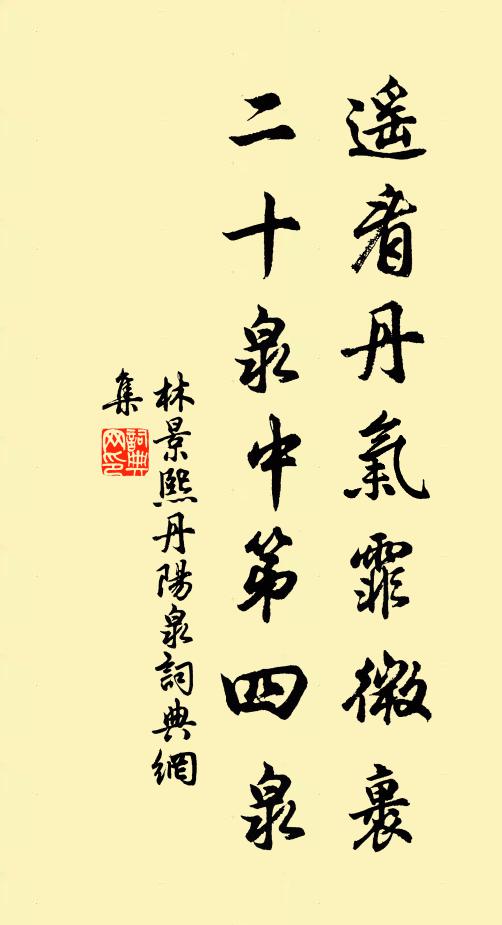 遥看丹氣霏微裏
二十泉中第四泉
林景熙丹陽泉詞典網
集
詞典網印